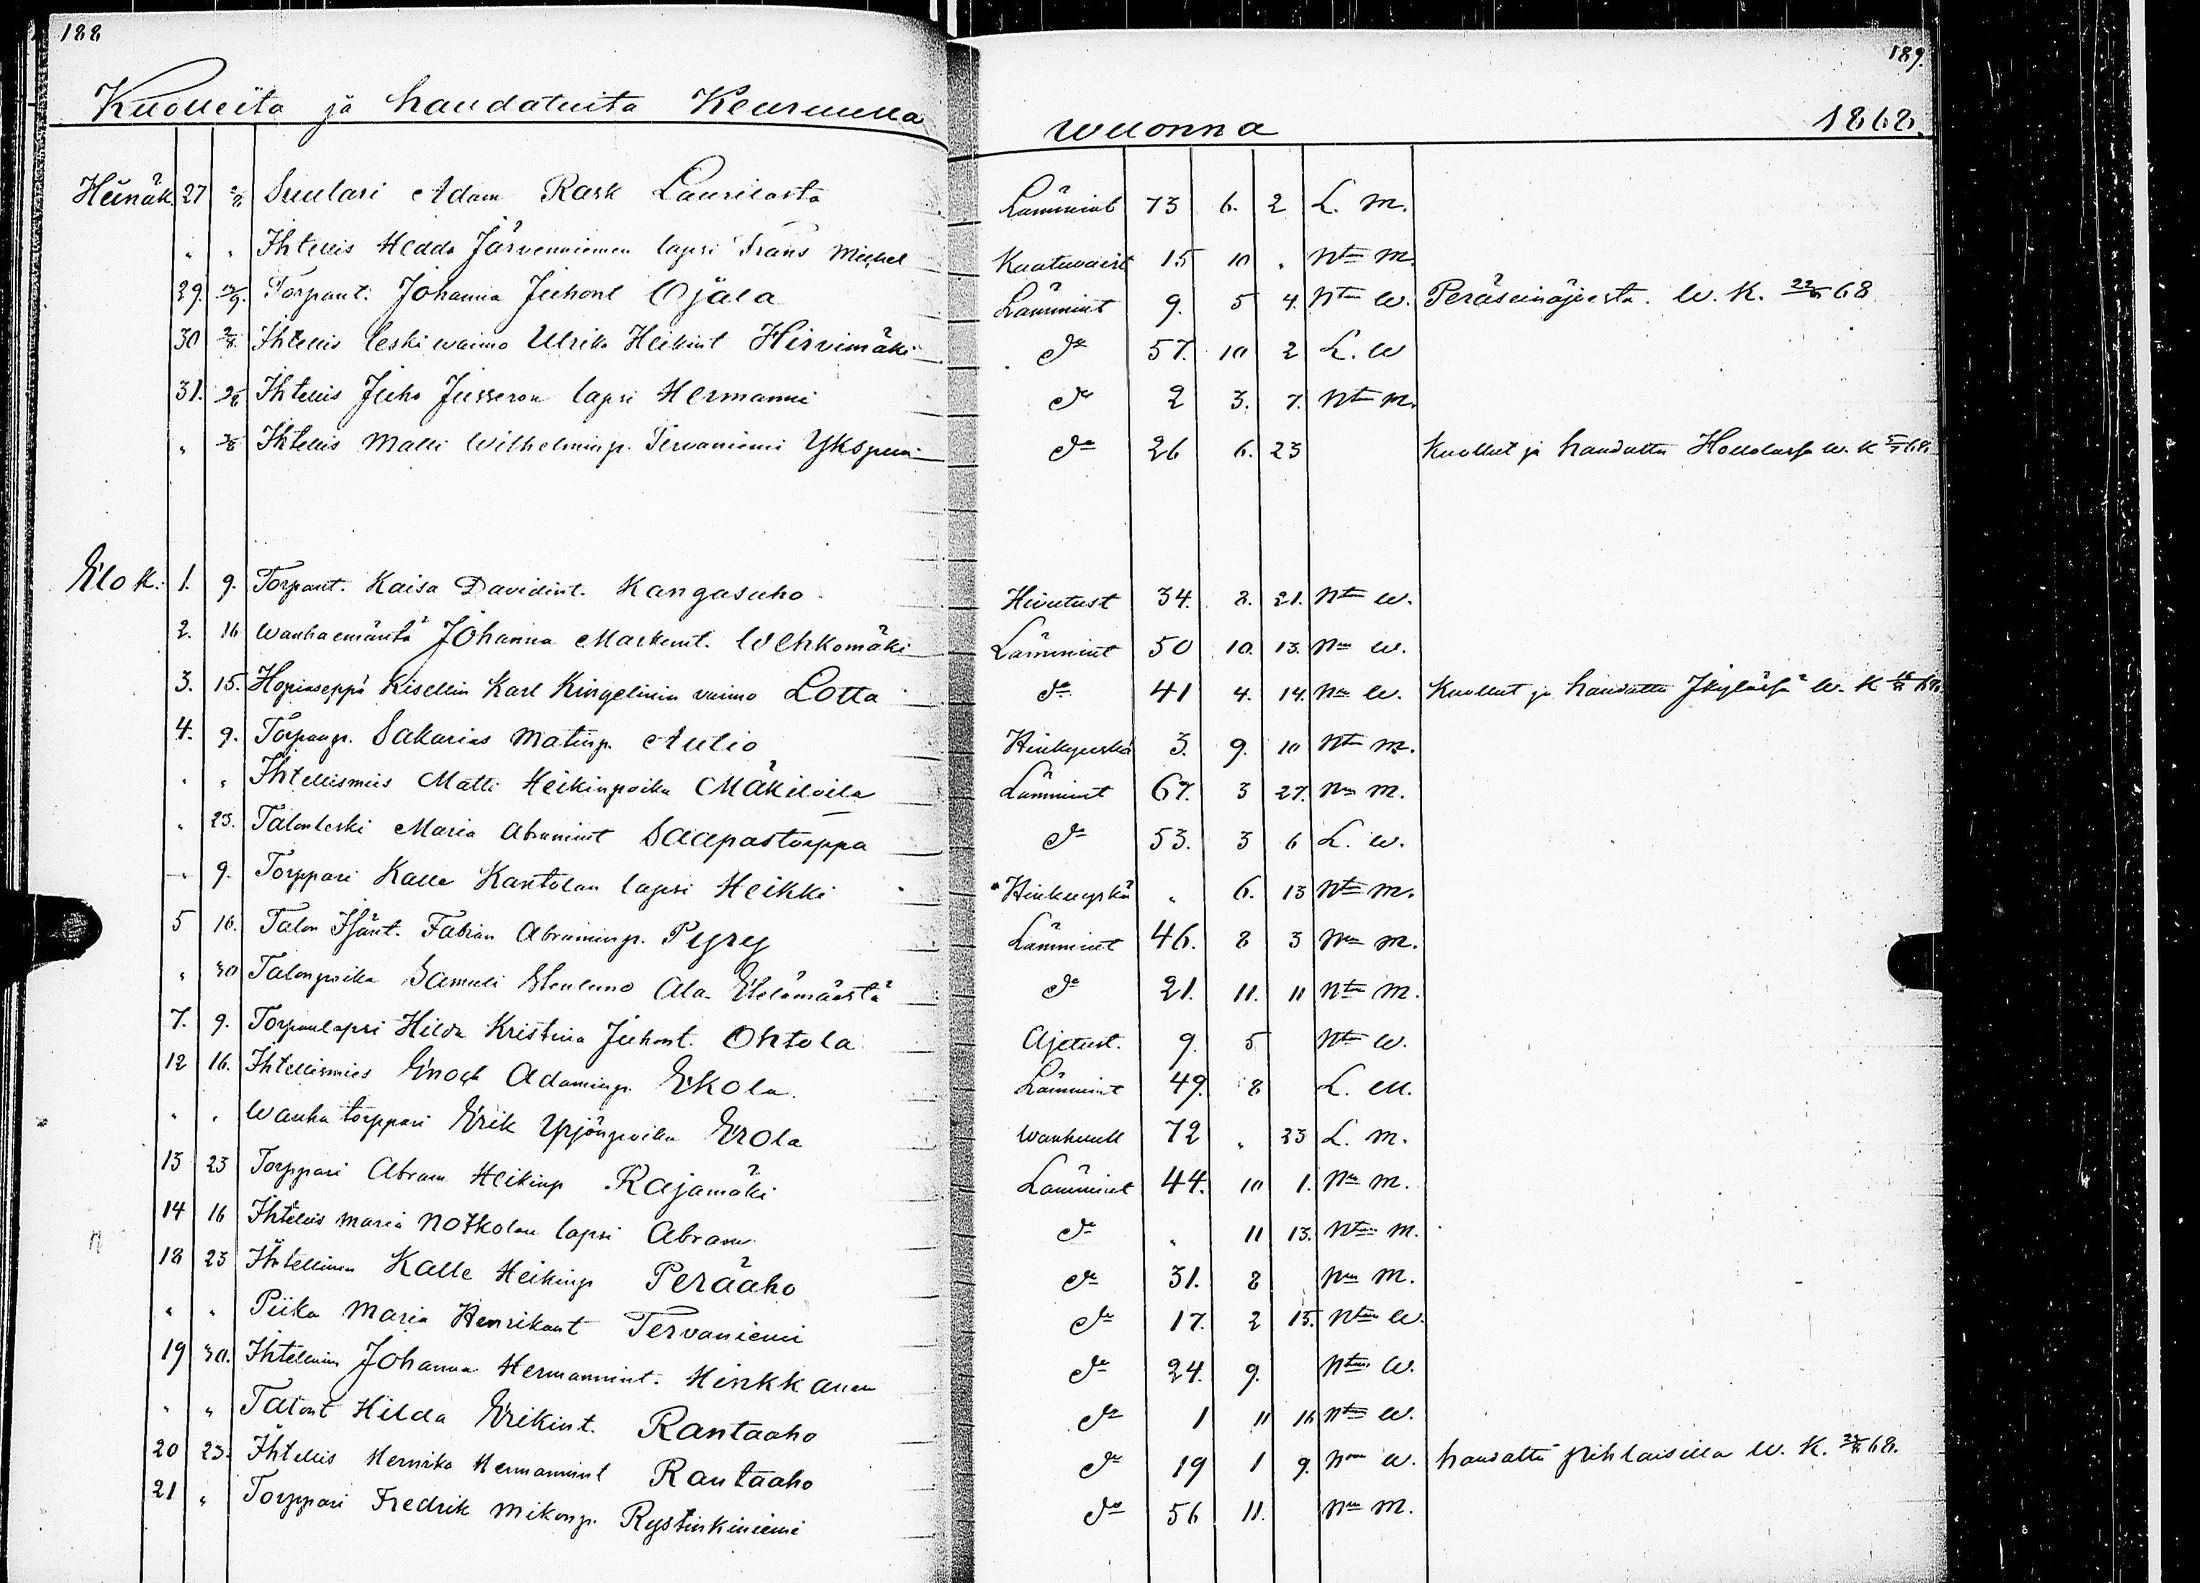 188
189.
Kuolleita ja haudatuita Keuruulla wuonna 1868.
Heinäk. 27 2/8 Suutari Adam Rask Laurilasta Lämmint 73 6. 2 L. m.
" " Ihtellis Hedda Järvenniemen lapsi Frans Michel 15 10 " Ntn m.
29. Torpant. Johanna Juhont Ojala Lämmint 9. 5 4. Ntn w. Peräseinäjoesta. W. K. 68
30 2/8 Ihtellis leskiwaimo Ulrika Heikint Hirvimäki do 57. 10 2 L. w
31. 2/8 Ihtellis Juho Jusseron lapsi Hermanni do 2 3. 7. Ntn m.
" Ihtellis Matti Wilhelminp. Tervaniemi Ykspuu do 26 6. 23 Kuollut ja haudattu Hollolassa w. K 68.
Elok. 1. 9. Torpant. Kaisa Davidint. Kangasaho Hivutust 34. 8. 21. Ntn w.
2. 16 Wanhaemäntä Johanna Markunt. Wehkomäki Lämmint 50 10. 13. Nn w.
3. 15. Hopiaseppä Kisellin Karl Kingelinin vaimo Lotta do 41 4. 14. Nn w. Kuollut ja haudattu W. K 68.
4. 9. Torpanp. Sakarias Matinp. Autio Hinkuyskä 3. 9. 10 Ntn m.
" " Ihtellismies Matti Heikinpoika Mäkiloila Lämmint 67. 3 27. Nn m.
" 23. Talonleski Maria Abramint Saapastorppa do 53. 3 6 L. w.
" 9. Torppari Kalle Kantolan lapsi Heikki Hinkuyskä " 6. 13 Ntn m.
5 16. Talon Isänt. Fabian Abraminp. Pyry Lämmint 46. 8 3 Nn m.
" 30 Talonpoika Samuli Ala Eleämäestä do 21. 11. 11 Ntn m.
7. 9. Torpanlapsi Hilda Kristina Juhont. Ohtola Ajetust. 9. 5 Ntn w.
12 16. Ihtellismies Enoch Adaminp. Ekola. Lämmint 49. 8 L. m.
" " Wanha torppari Erik Yrjönpoika Erola Wanhuutt 72 " 23 L. m.
13 23 Torppari Abram Heikinp Rajamäki Lämmint 44. 10 1. Nn m.
14 16 Ihtellis Maria Notkolan lapsi Abram do " 11 13. Ntn m.
18 23 Ihtellinen Kalle Heikinp Perääho do 31. 8 Nn m.
" " Piika Maria Henrikant Tervaniemi do 17. 2 15. Ntn w.
19 30. Ihtellinen Johanna Hermannint. Hinkkanen do 24. 9. Ntn w.
" " Talont Hilda Erikint. Rantaaho do 1 11 16 Ntn w.
20 23. Ihtellis Henrika Hermannint Rantaaho do 19 1 9. Nn w. haudattu Pihlaisilla W. K. 68.
21 " Torppari Fredrik Mikonp. Rystinkiniemi do 56 11. Nn m.